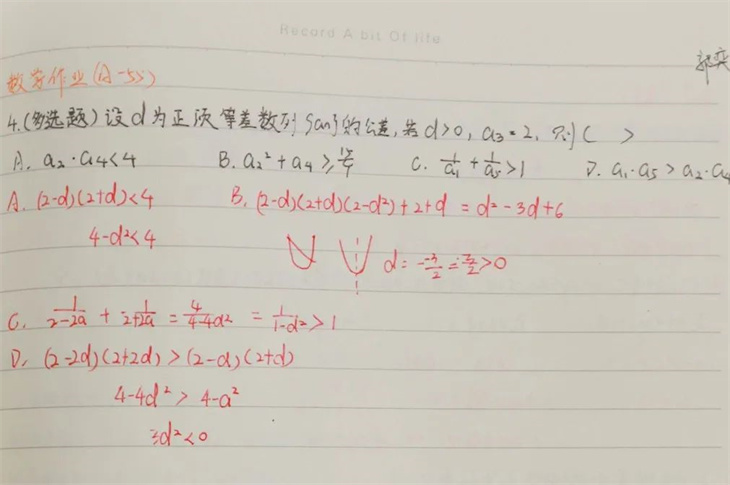 Record A bit Of life
数学作业(A-55)
4.(多选题)设d为正项等差数列{an}的公差,若d>0, a₃=2, 则( )
A. a₂·a₄<4 B. a₂²+a₄≥15/4 C. 1/a₁+1/a₅>1 D. a₁·a₅>a₂·a₄
A. (2-d)(2+d)<4 B. (2-d)(2+d)(2-d²)+2+d = d²-3d+6
4-d²<4
d=-(-3)/2=3/2>0
C. 1/(2-2d) + 1/(2+2d) = 4/(4-4d²) = 1/(1-d²)>1
D. (2-2d)(2+2d)>(2-d)(2+d)
4-4d²>4-d²
3d²<0